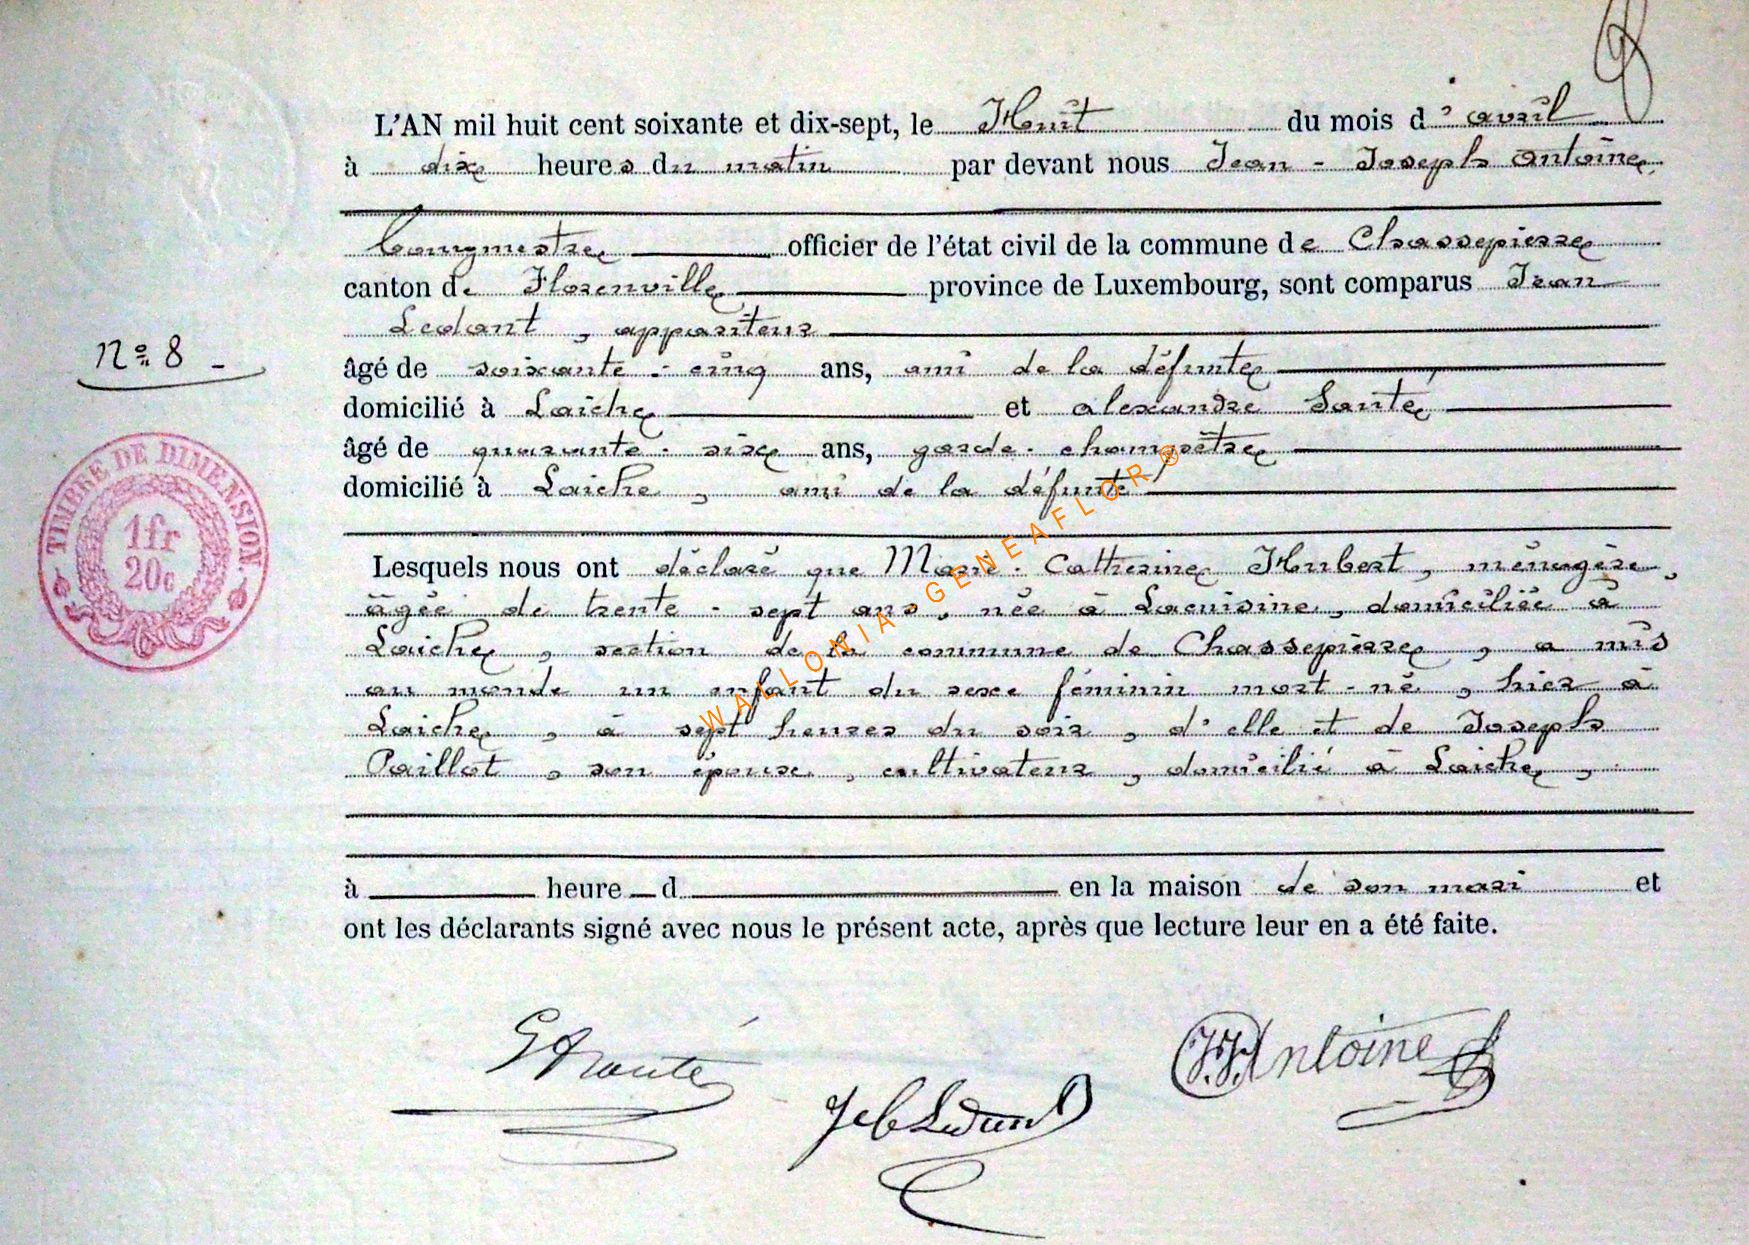 L'AN mil huit cent soixante et dix-sept, le Huit du mois d'avril
à dix heures du matin par devant nous Jean - Joseph Antoine
bourgmestre officier de l'état civil de la commune de Chassepierre
canton de Florenville province de Luxembourg, sont comparus Jean
Ledant, appariteur
âgé de soixante-cinq ans, ami de la défunte
domicilié à Laiche et alexandre Santé,
âgé de quarante-six ans, garde-champêtre
domicilié à Laiche, ami de la défunte
Nº 8 -
TIMBRE DE DIMENSION
1fr
20c
Lesquels nous ont déclaré que Marie-Catherine Hubert, ménagère,
âgée de trente-sept ans, née à Lacuisine, domiciliée à
Laiche, section de la commune de Chassepierre, a mis
au monde un enfant du sexe féminin mort-né, hier à
Laiche, à sept heures du soir, d'elle et de Joseph
Paillot, son épouse, cultivateur, domicilié à Laiche,
à heure d en la maison de son mari et
ont les déclarants signé avec nous le présent acte, après que lecture leur en a été faite.
Santé
Ledant
J.J. Antoine
WALLONIA GENEAFLOR®